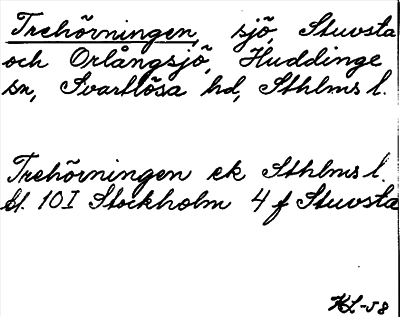 Trehörningen, sjö, Stuvsta
och Orlångsjö, Huddinge
sn, Svartlösa hd, Sthlms l.
Trehörningen ek Sthlms l.
bl. 10I Stockholm 4 f Stuvsta
KL-58